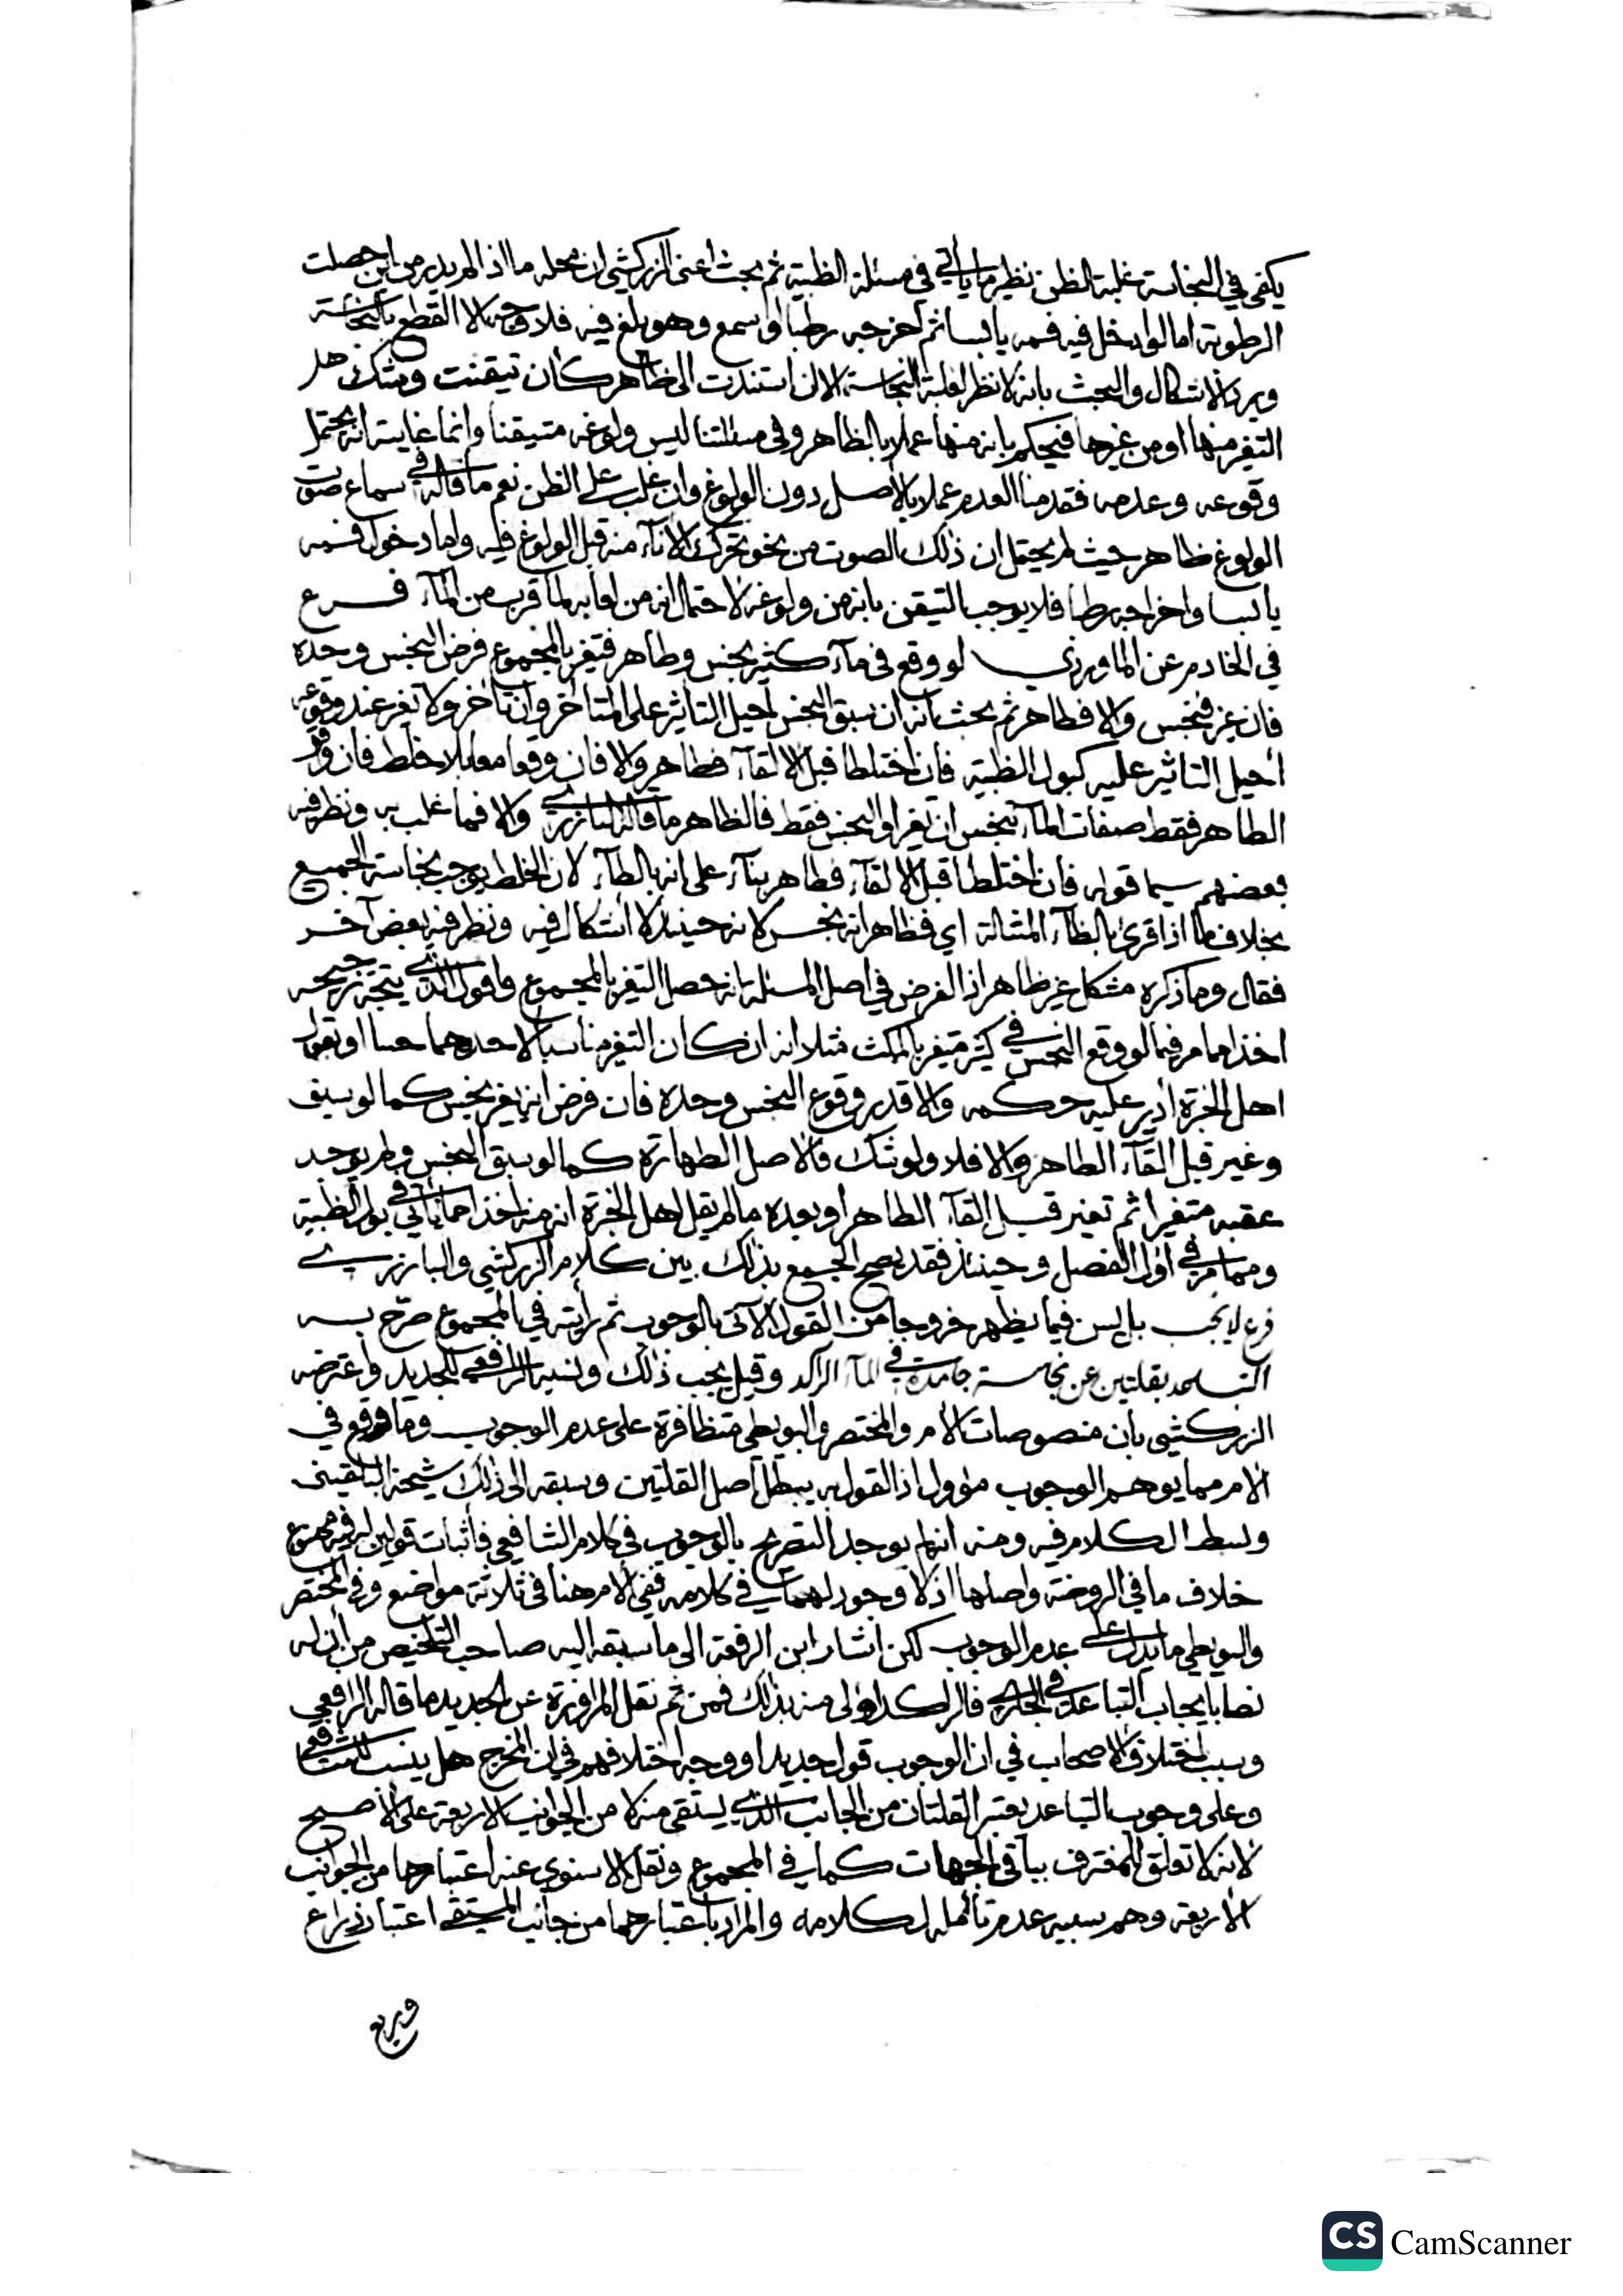 يكفي في النجاسة غلبة الظن نظير ما يأتي في مسئلة الظبية ثم بحث اعني الزركشي ان محله ما اذا لم يدر من اين حصلت
الرطوبة اما لو ادخل فيه فمه يابسا ثم اخرجه رطبا او سمع وهو يلغ فيه فلا وجه الا القطع بالنجاسة
ويرد الاشكال والبحث بانه لا نظر لغلبة النجاسة الا ان استندت الى ظاهر كأن تيقنت وشك هل
التغير منها او من غيرها فيحكم بانه منها عملا بالظاهر وفي مسئلتنا ليس ولوغه متيقنا وانما غايته انه يحتمل
وقوعه وعدمه فقدمنا العدم عملا بالاصل دون الولوغ وان غلب على الظن نعم ما قاله في سماع صوت
الولوغ ظاهر حيث لم يحتمل ان ذلك الصوت من نحو تحرك الاناء منه قبل الولوغ فيه واما دخول فمه
يابسا واخراجه رطبا فلا يوجب التيقن بانه من ولوغه لاحتمال انه من لعابه لما قرب من الماء فرع
في الخادم عن الماوردي لو وقع في ماء كثير نجس وطاهر فتغير بالمجموع فرض النجس وحده
فان غير فنجس والا فطاهر ثم بحث بانه ان سبق النجس احيل التاثير على المتاخر وان تأخر ولا تغير عند وقوعه
احيل التاثير عليه كبول الظبية فان اختلطا قبل الالقاء فطاهر والا فان وقعا معا بلا خلط فان وافق
الطاهر فقط صفات الماء تنجس ان تغير او النجس فقط فالظاهر ما قاله البازري والا فما غلب به ونظر فيه
بعضهم سيما قوله فان اختلطا قبل الالقاء فطاهر بناء على انه بالطاء لان الخلط يوجب نجاسة الجميع
بخلاف ما اذا قرئ بالظاء المشالة اي فظاهر انه نجس لانه حينئذ لا اشكال فيه ونظر فيه بعض آخر
فقال وما ذكره مشكل غير ظاهر اذ الفرض في اصل المسئلة انه حصل التغير بالمجموع واقول الذي يتجه ترجيحه
اخذا مما مر فيما لو وقع النجس في كثير متغير بالمكث مثلا انه ان كان التغير مناسبا لاحدهما حسا او بقول
اهل الخبرة ادير عليه حكمه والا قدر وقوع النجس وحده فان فرض انه يغير نجس كما لو سبق
وغير قبل القاء الطاهر والا فلا ولو شك فالاصل الطهارة كما لو سبق النجس ولم يوجد
عقبه متغيرا ثم تغير قبل القاء الطاهر او بعده ما لم يقل اهل الخبرة انه منه اخذا مما يأتي في بول الظبية
ومما مر في اول الفصل وحينئذ فقد يصح الجمع بذلك بين كلام الزركشي والبازري
فرع لا يجب بل يسن فيما يظهر خروجا من القول الآتي بالوجوب ثم رأيته في المجموع صرح به
التباعد بقلتين عن نجاسة جامدة في الماء الراكد وقيل يجب ذلك ونسبه الرافعي للجديد واعترضه
الزركشي بأن منصوصات الام والمختصر والبويطي متظافرة على عدم الوجوب وما وقع في
الام مما يوهم الوجوب مؤول اذ القول به يبطل اصل القلتين وسبقه الى ذلك شيخه البلقيني
وبسط الكلام فيه ومنه انه لم يوجد التصريح بالوجوب في كلام الشافعي فأثبات قولين له فيه ممنوع
خلاف ما في الروضة واصلها اذ لا وجود لهما في كلامه ففي الام هنا في ثلاثة مواضع وفي المختصر
والبويطي ما يدل على عدم الوجوب لكن اشار ابن الرفعة الى ما سبقه اليه صاحب التلخيص من أن له
نصا بايجاب التباعد في الجاري فالراكد اولى منه بذلك فمن ثم نقل المراوزة عن الجديد ما قاله الرافعي
وسبب اختلاف الاصحاب في ان الوجوب قول جديد او وجه اختلافهم في ان المخرج هل ينسب للشافعي
وعلى وجوب التباعد يعتبر القلتان من الجانب الذي يستقى منه لا من الجوانب الاربعة على الاصح
لانه لا تعلق للمغترف بباقي الجهات كما في المجموع ونقل الاسنوي عنه اعتبارها من الجوانب
الاربعة وهم سببه عدم تأمله لكلامه والمراد باعتبارهما من جانب المستقى اعتبار ذراع
وربع
CS CamScanner